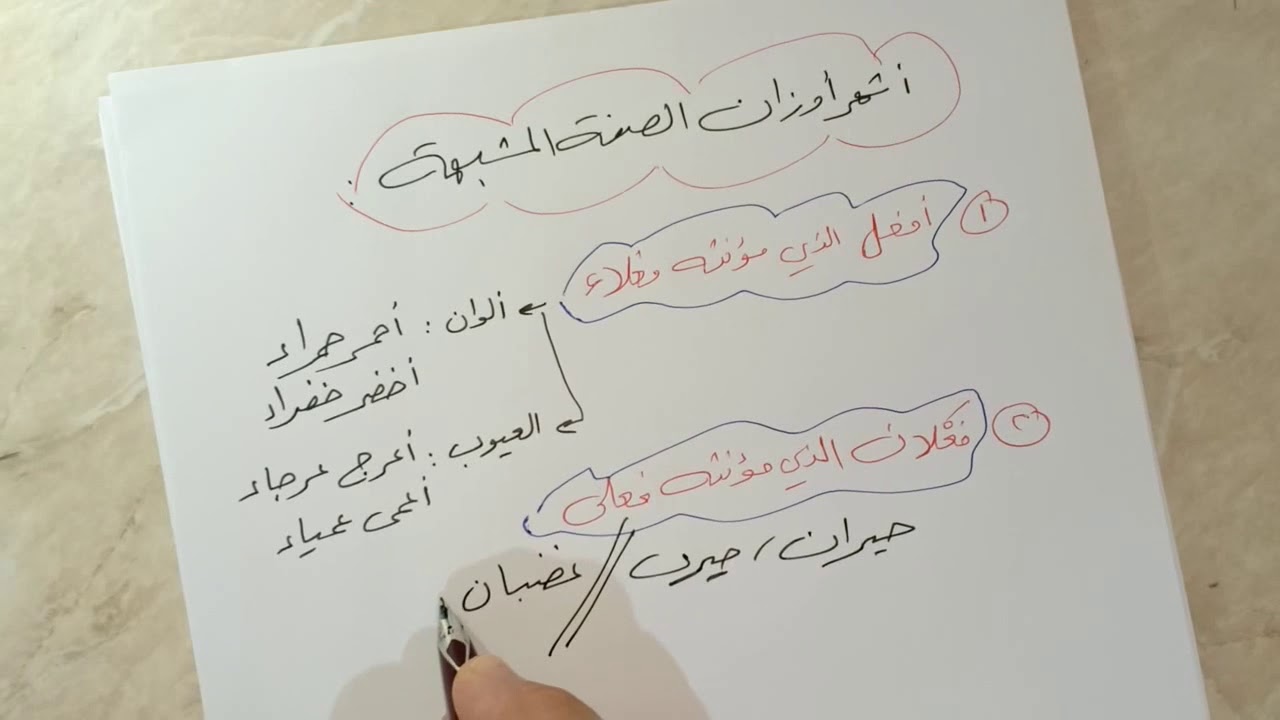 أشهر أوزان الصفة المشبهة :
١ أفعل الذي مؤنثه فعلاء
ألوان : أحمر حمراء
أخضر خضراء
العيوب : أعرج عرجاء
أعمى عمياء
٢ فَعْلان الذي مؤنثه فعلى
حيران / حيرى // غضبان